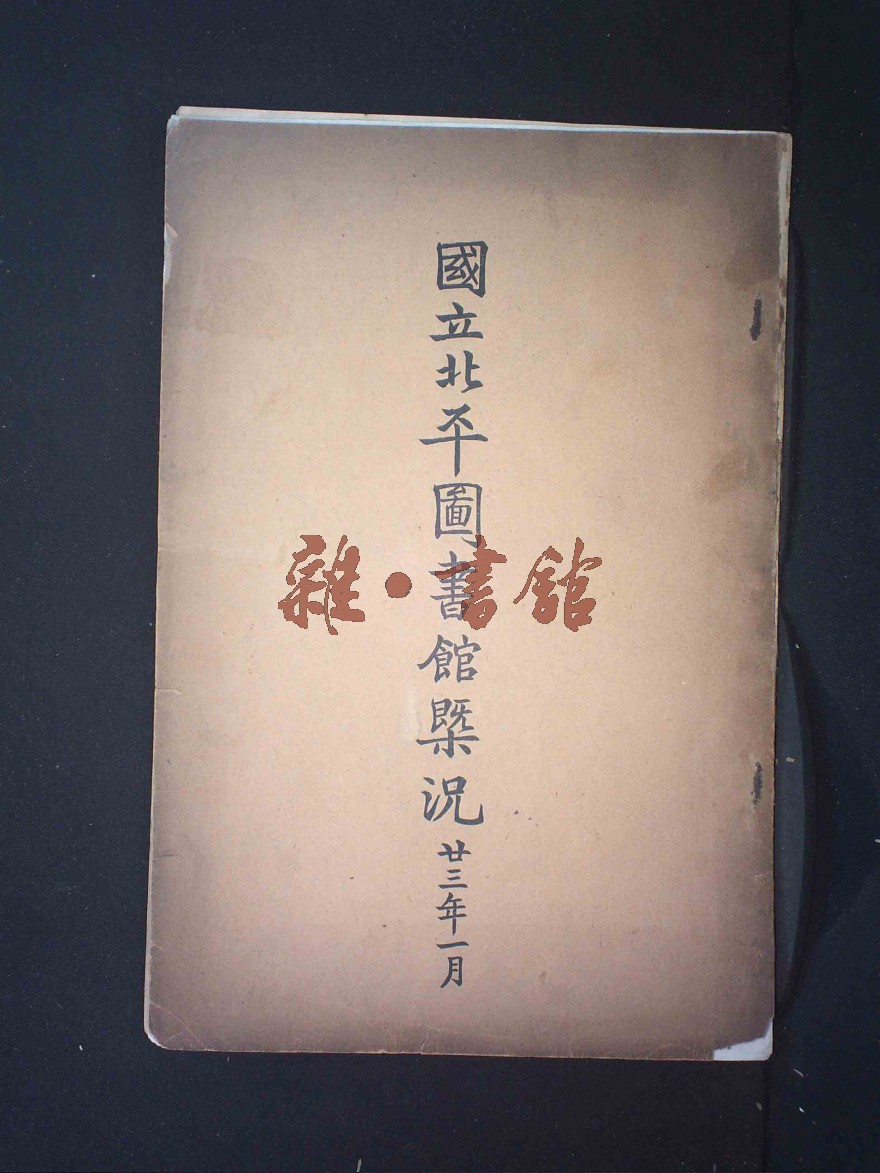 國立北平圖書館槩況
廿三年一月
雜·書館